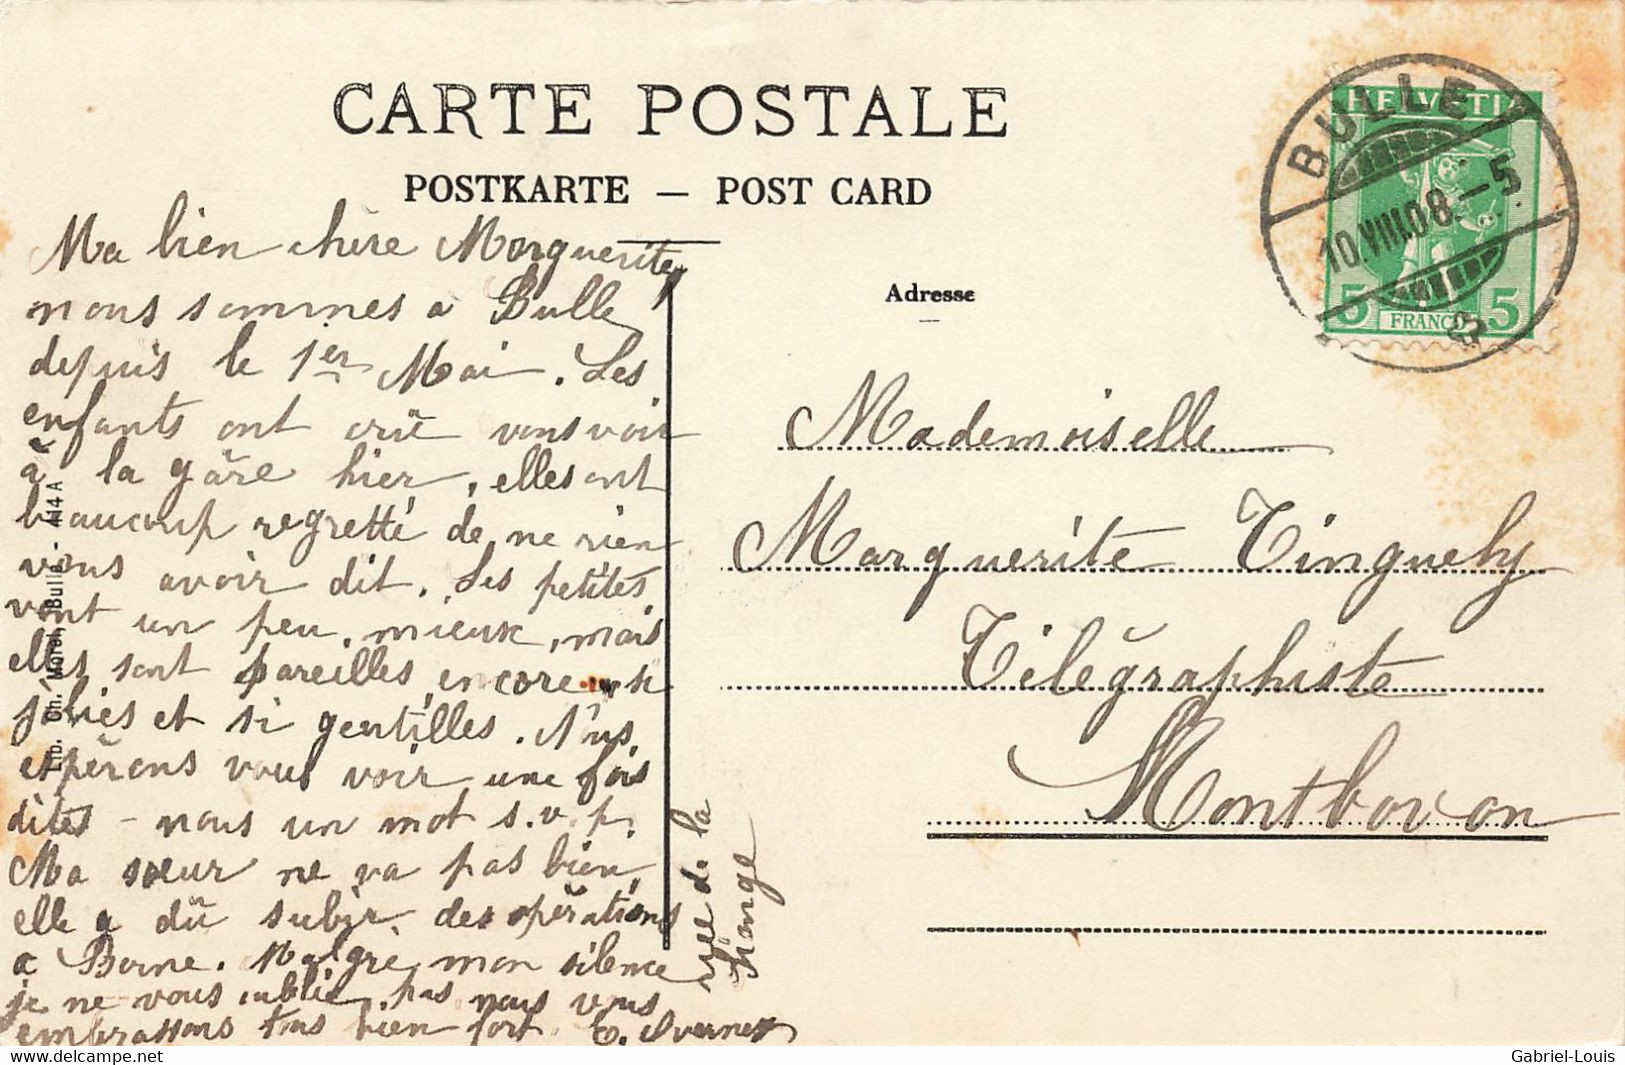 CARTE POSTALE
POSTKARTE — POST CARD
Adresse
BULLE
10.VIII.08.–5
HELVETIA
5 FRANCO 5
Ma bien chère Marguerite,
nous sommes a Bulle
depuis le 1er Mai. Les
enfants ont crû vous voir
à la gâre hier, elles ont
beaucoup regretté de ne rien
vous avoir dit. Les petites
vont un peu mieux, mais
elles sont pareilles, encore si
jolies et si gentilles. Nous
espèrons vous voir une fois
dites-nous un mot s.v.p.
Ma sœur ne va pas bien,
elle a dû subir des opérations
a Berne. Malgré mon silence
je ne vous oublie pas nous vous
embrassons tous bien fort. C.
rue de la
Lib. Ch. Morel, Bulle - 414 A
Mademoiselle
Marguerite Tinguely
Télégraphiste
Montbovon
www.delcampe.net
Gabriel-Louis